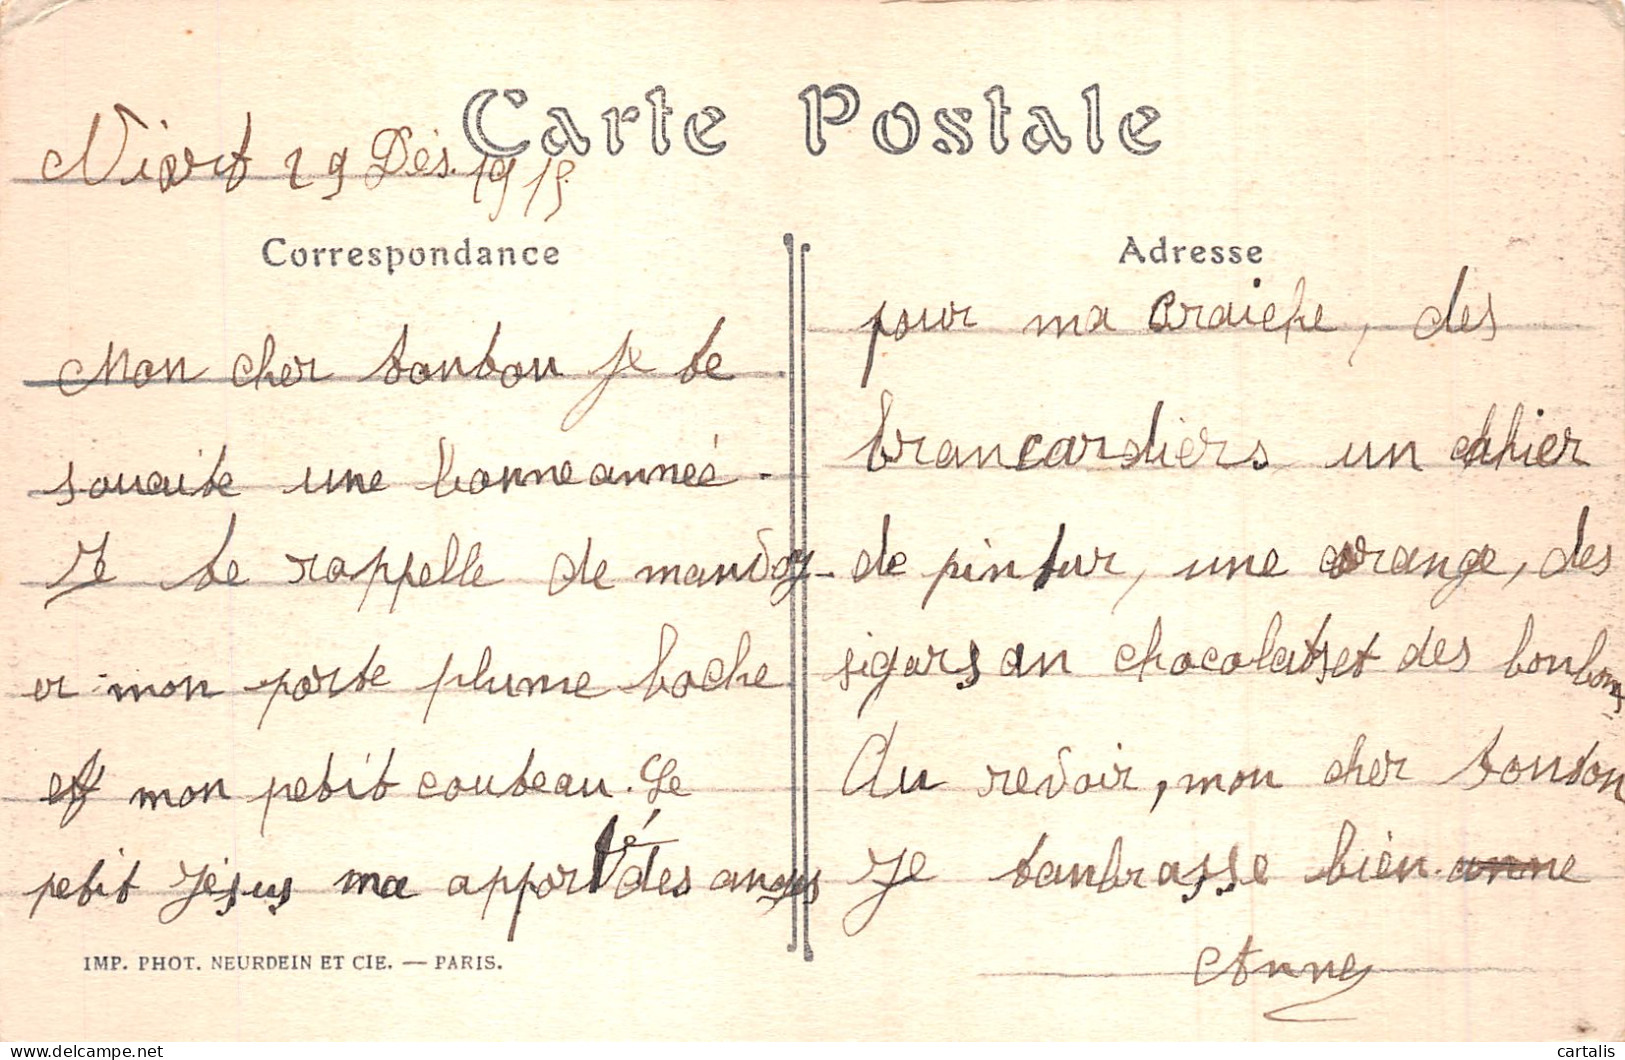 Carte Postale
Niort 29 Dés. 1915
Correspondance
Mon cher tonton je te
souaite une bonne anneé.
Je te rappelle de m'anvoy-
er mon porte plume boche
et mon petit couteau. Le
petit Jésus ma apporté des anges
IMP. PHOT. NEURDEIN ET CIE. — PARIS.
Adresse
pour ma craiche, des
brancardiers un cahier
de pintur, une orange, des
sigars an chocolatset des bonbons
Au revoir, mon cher tonton
Je tanbrasse bien.
Anne
cartalis